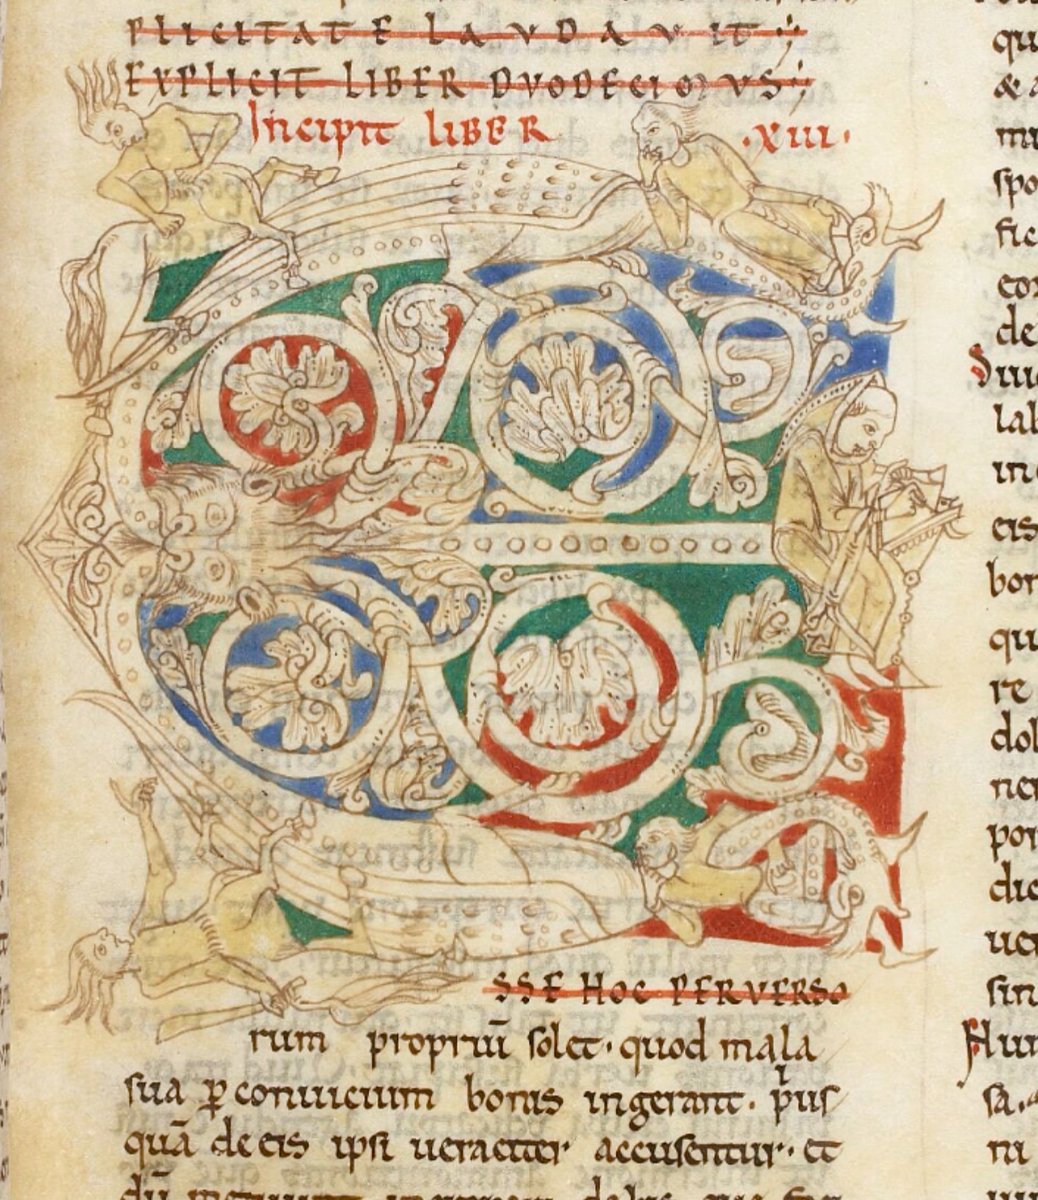 PLICITATE LAVDAVIT
EXPLICIT LIBER DVODECIMVS
Incipit LIBER .XIII.
SSE HOC PERVERSO
rum propriū solet. quod mala
sua ꝑ conuicium bonis ingerant. pius
quā de eis ipsi ueraciter accusentur. et
qu
&
mu
spo
fic
cor
de
lab
in
cis
bon
qu
re
dol
ner
por
dic
uer
sin
sa.
ni